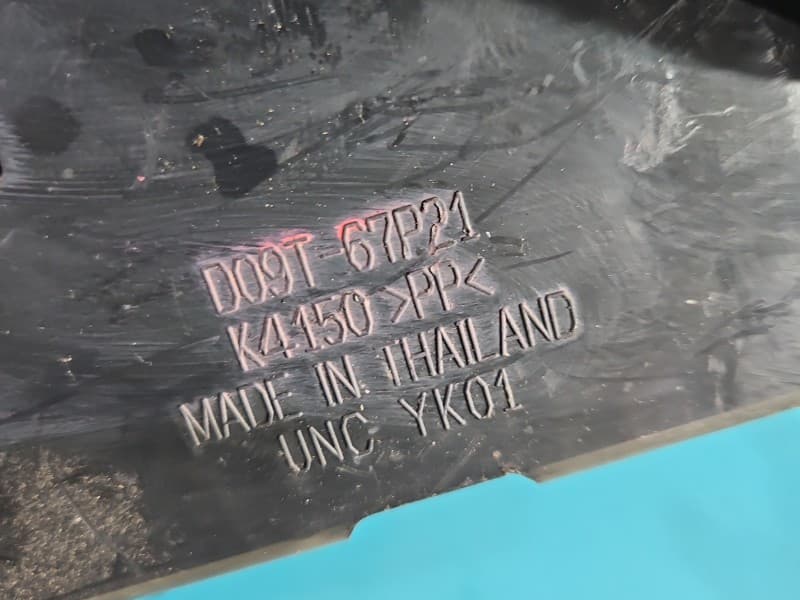 D09T-67P21
K4150 >PP<
MADE IN THAILAND
UNC YK01